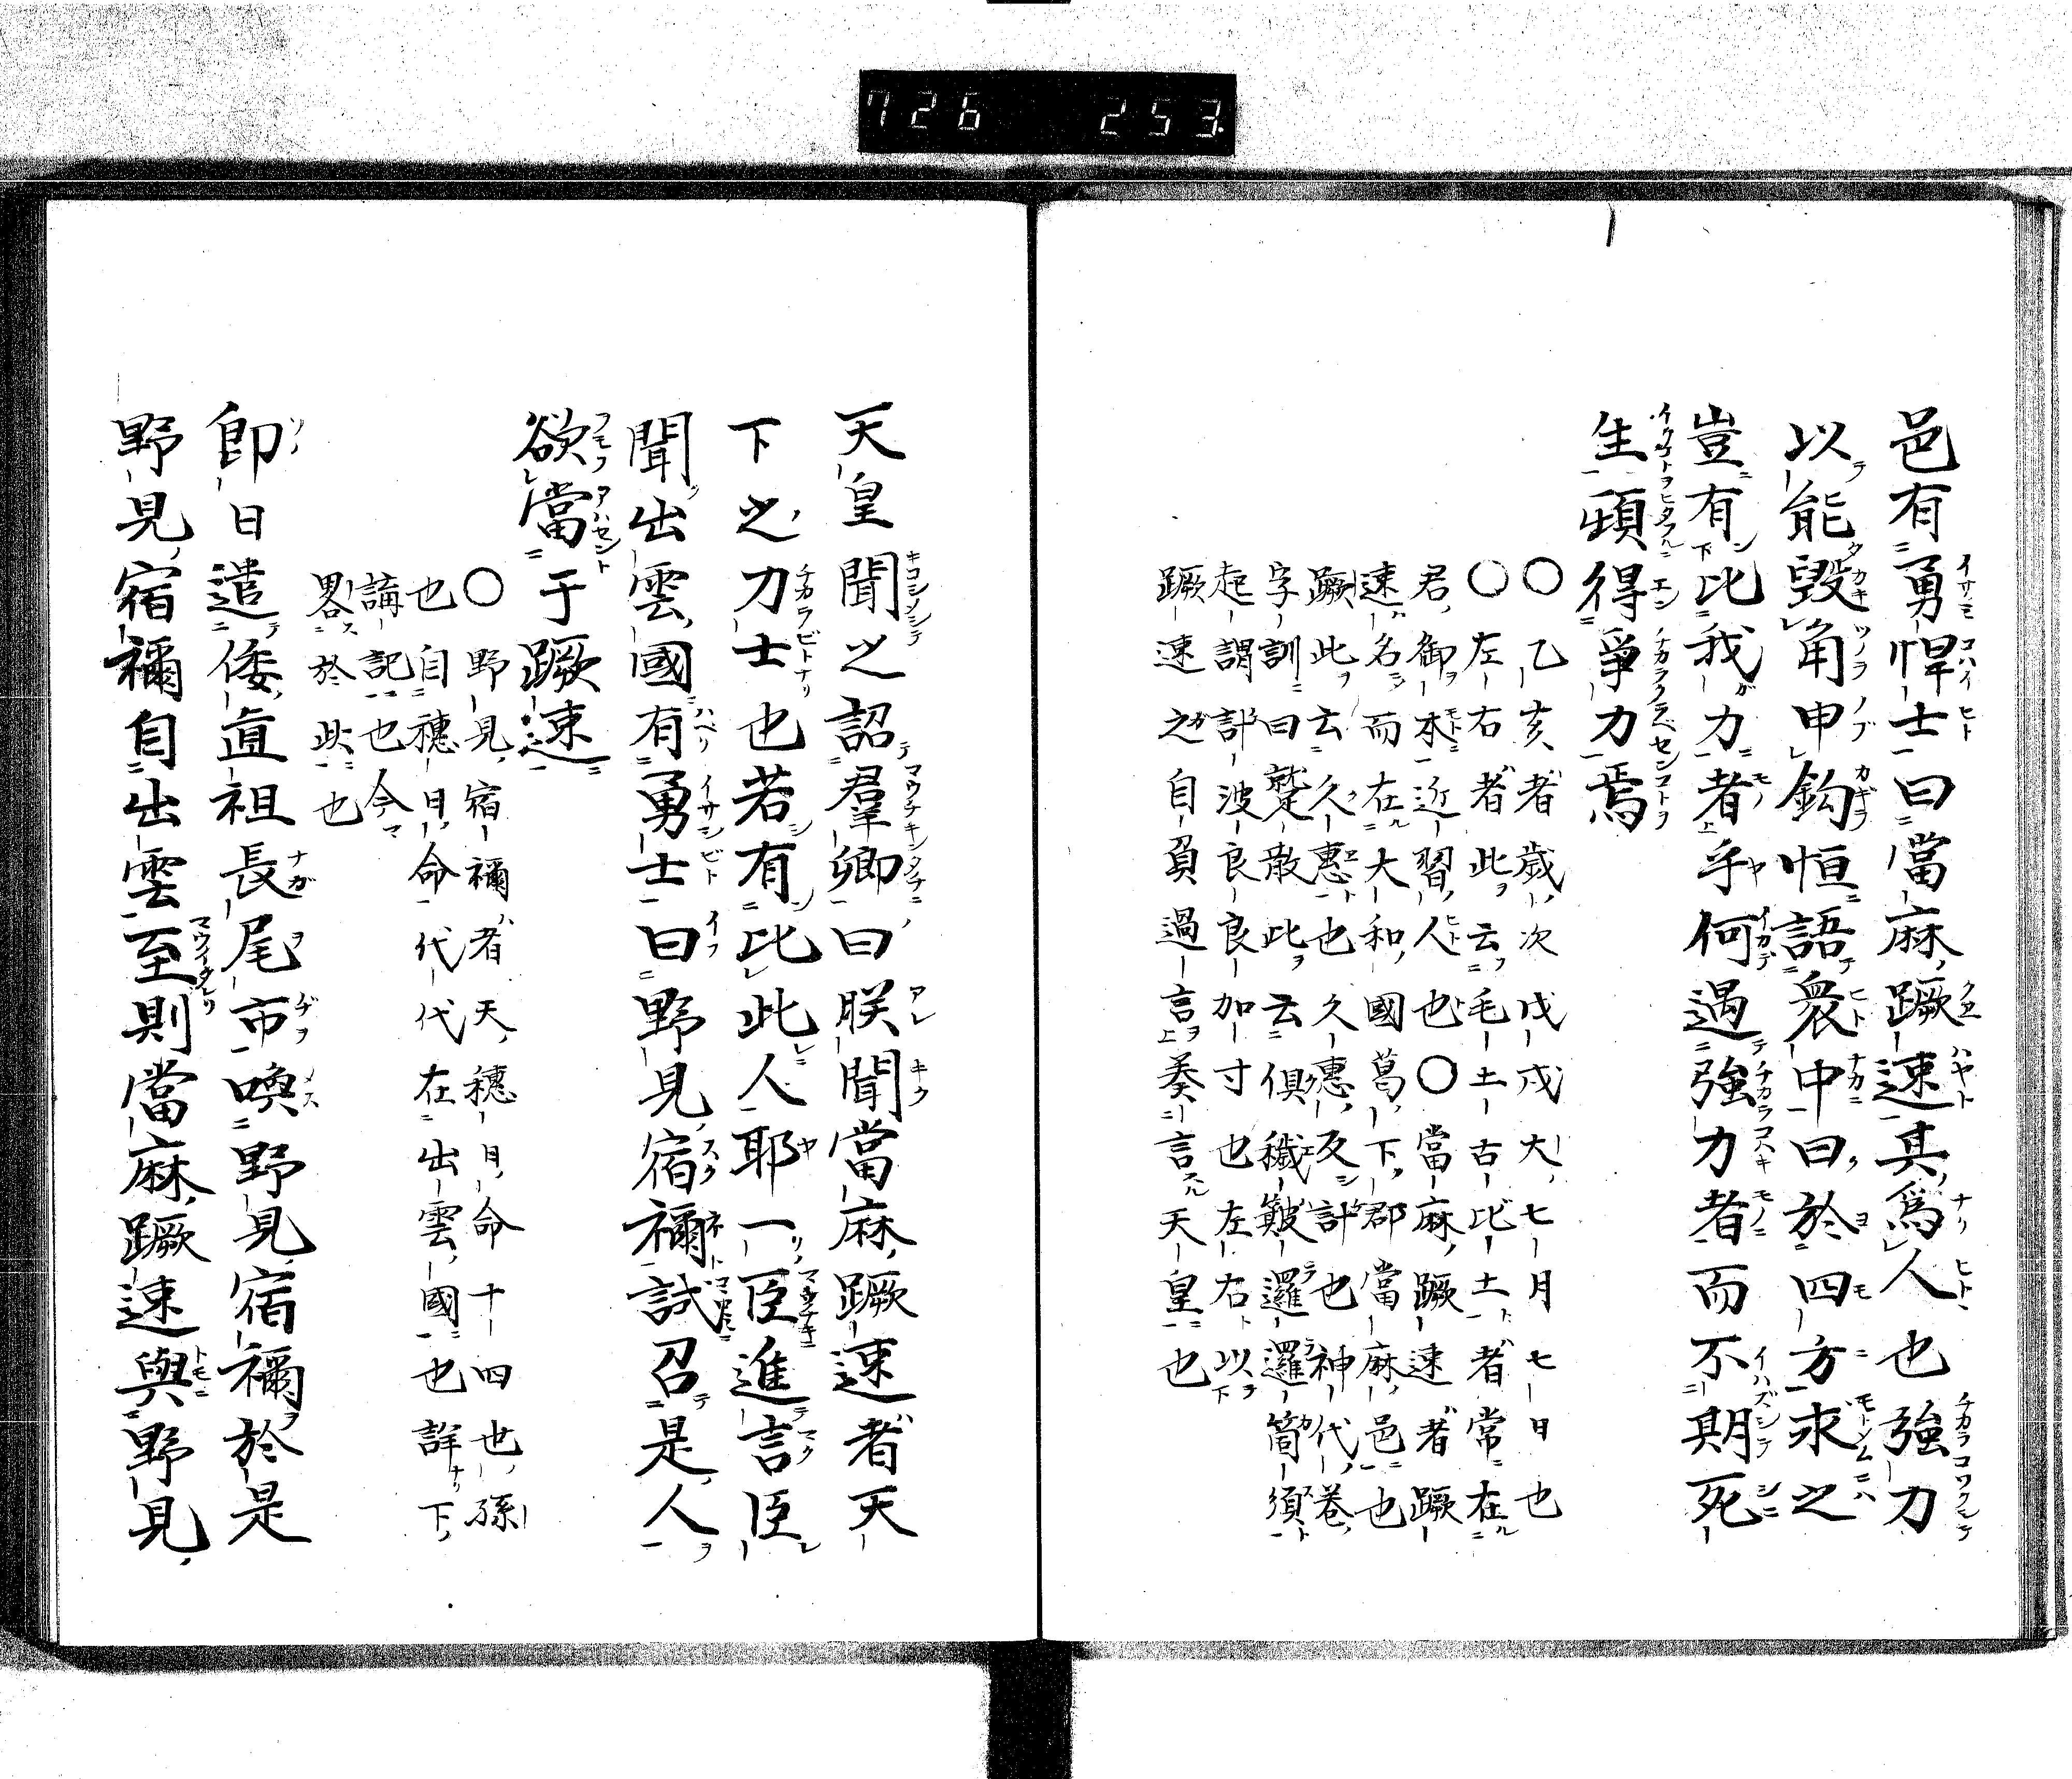 726 253.
邑有勇悍士曰當麻蹶速其爲人也強力
以能毀角申鈎恒語衆中曰於四方求之
豈有比我力者乎何遇強力者而不期死
生頓得爭力焉
〇乙亥歳次戊戌大七月七日也
〇左右者此云毛土古比土者常在
君御本近習人也〇當麻蹶速者蹶
速名而在大和國葛下郡當麻邑也
蹶此云久惠也久惠反計也神代巻
字訓曰蹵散此云倶穢簸邏邏箇須
起謂計波良良加寸也左右以
蹶速之自負過言奏言天皇也
天皇聞之詔羣卿曰朕聞當麻蹶速者天
下之力士也若有比此人耶一臣進言臣
聞出雲國有勇士曰野見宿禰試召是人
欲當于蹶速
〇野見宿禰者天穂日命十四世孫
也自穂日命代代在出雲國也詳下
講記也今
畧於此也
即日遣倭直祖長尾市喚野見宿禰於是
野見宿禰自出雲至則當麻蹶速與野見